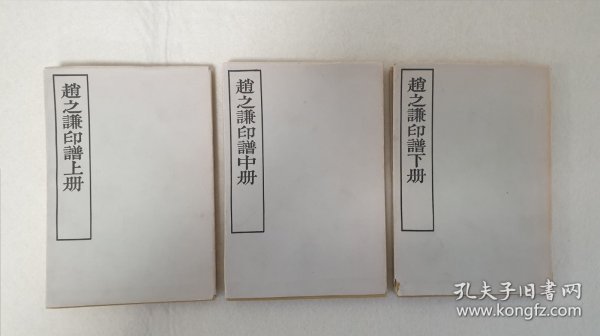 趙之謙印譜上册
趙之謙印譜中册
趙之謙印譜下册
孔夫子旧书网
www.kongfz.com